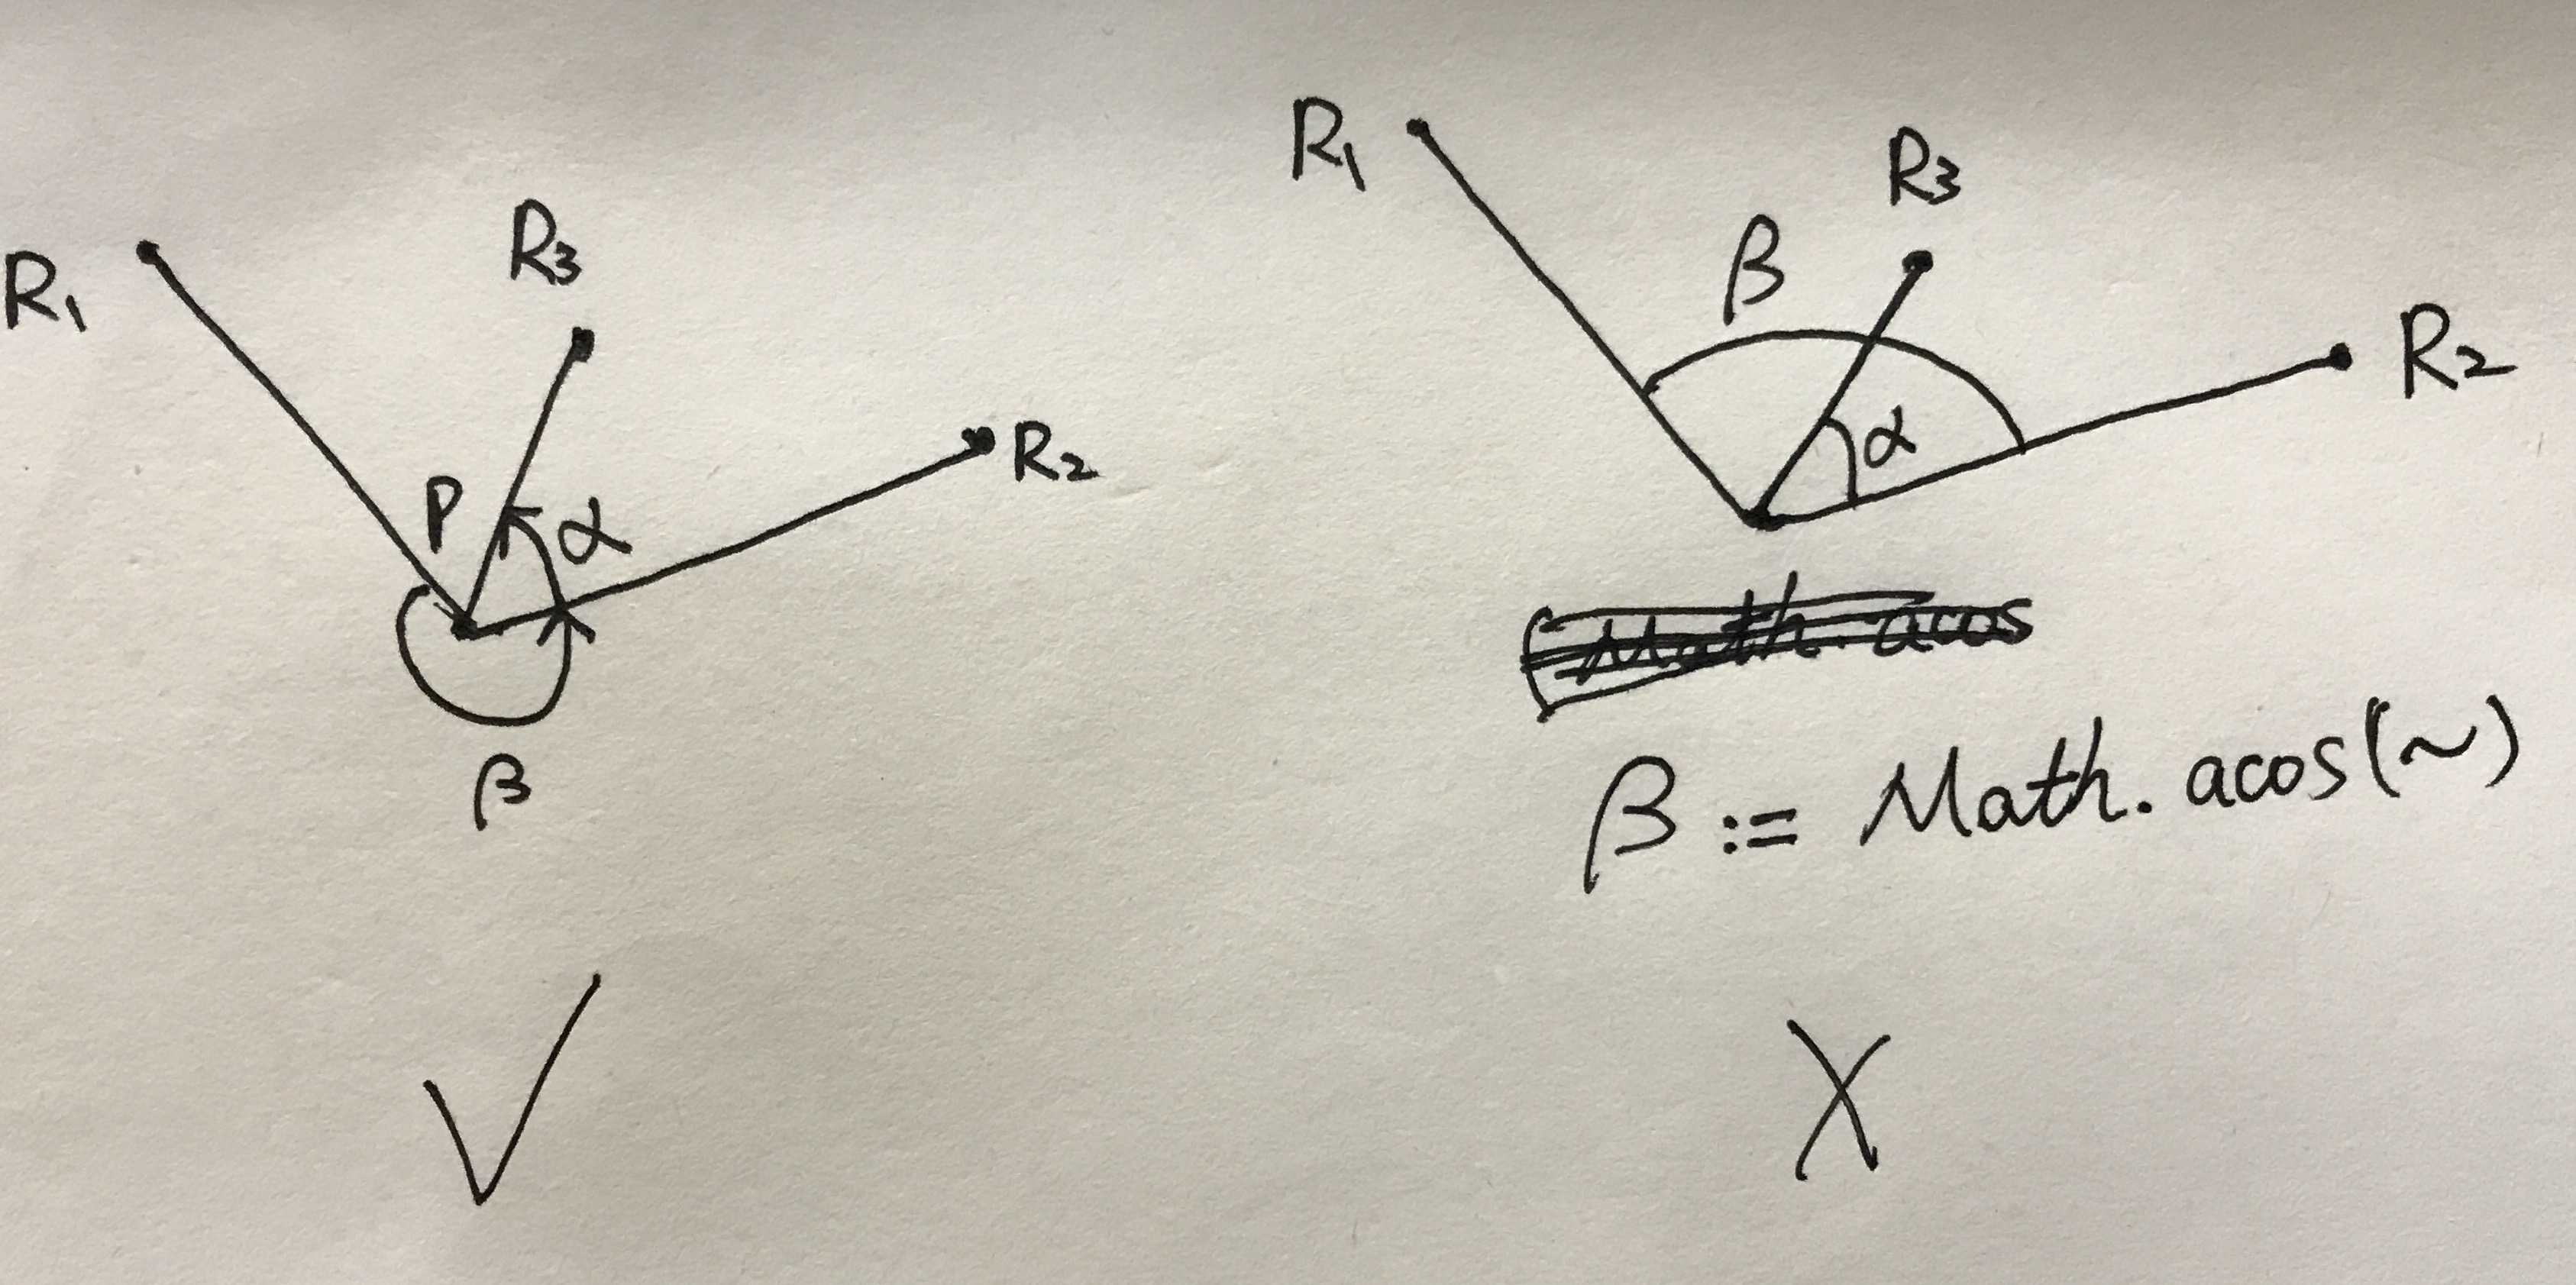 R₁
R₃
P
α
R₂
β
✓
R₁
R₃
β
α
R₂
Math.acos
β := Math.acos(~)
X